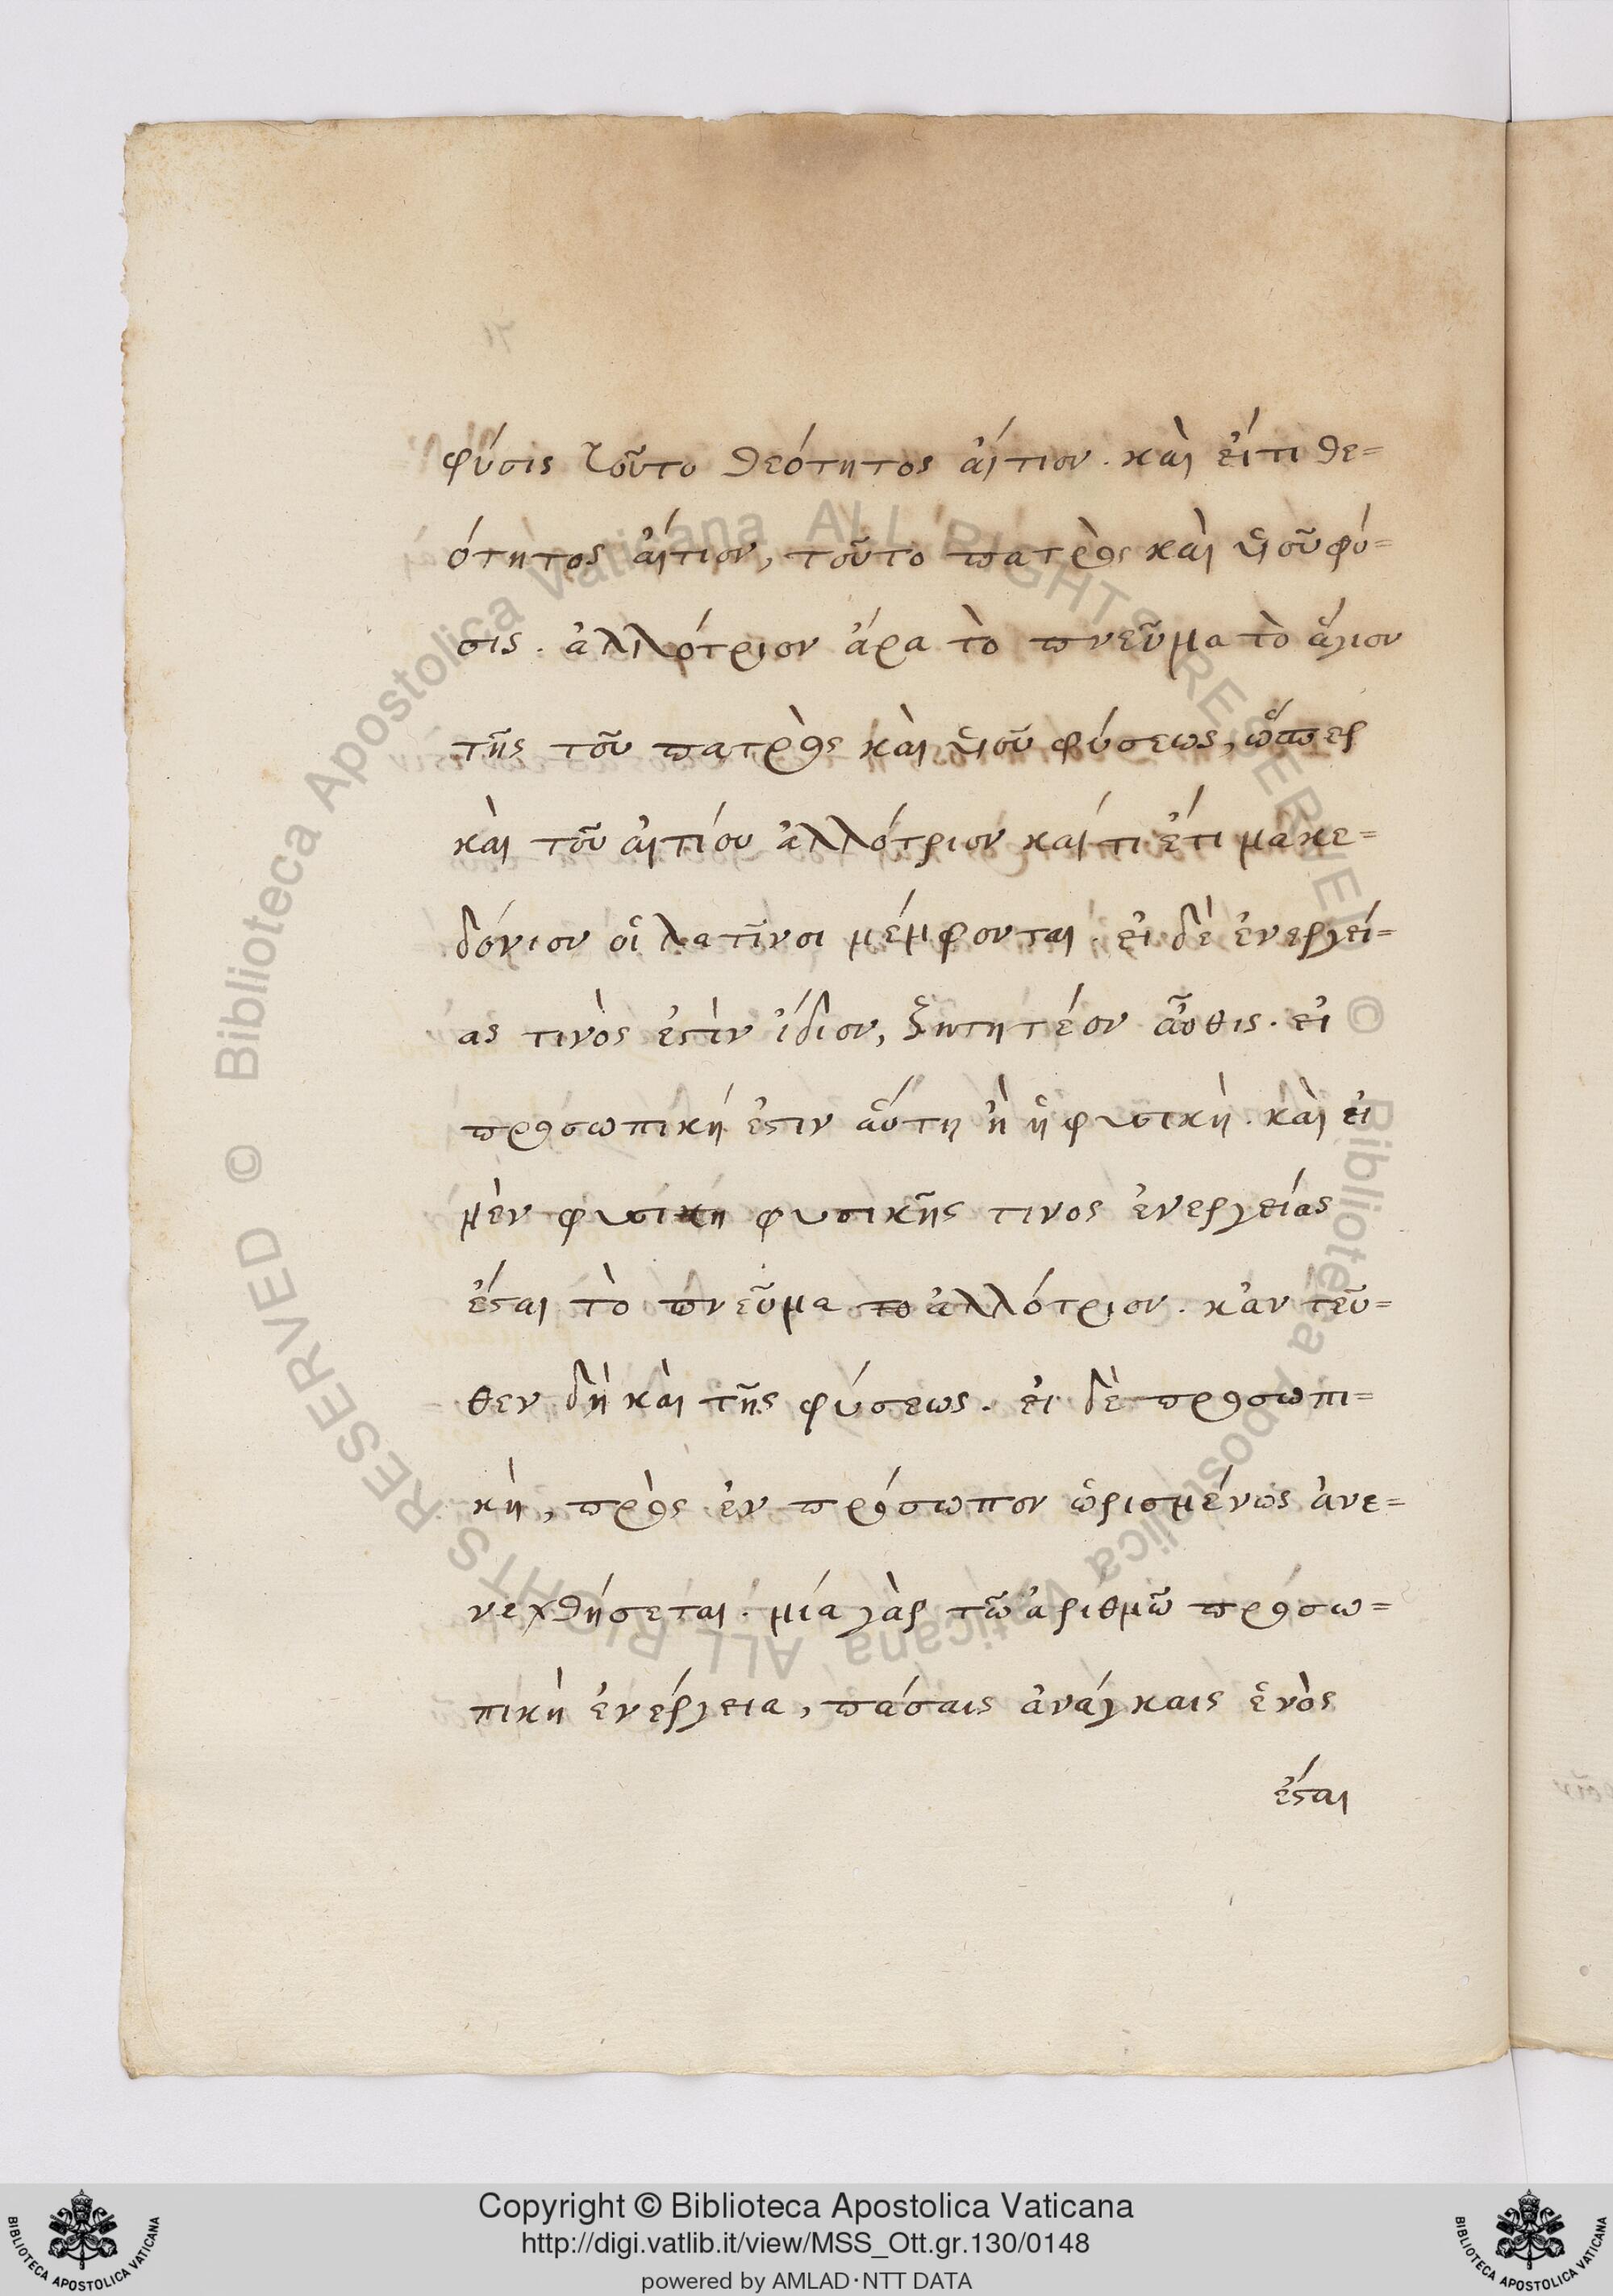 φύσις τοῦτο θεότητος ἀίτιον. καὶ ἐίτι θε=
ότητος ἀίτιον, τοῦτο πατρὸς καὶ ὑιοῦ φύ=
σις. ἀλλότριον ἄρα τὸ πνεῦμα τὸ ἅγιον
τῆς τοῦ πατρὸς καὶ ὑιοῦ φύσεως, ὥσπερ
καὶ τοῦ ἀιτίου ἀλλότριον καί τι ἔτι μακε=
δόνιον οἱ λατῖνοι μέμφονται. ἐι δὲ ἐνεργεί=
ας τινὸς ἐστὶν ἴδιον, ζητητέον αὖθις. ἐι
προσωπική ἐστιν ἁύτη ἢ ἡ φυσικὴ. καὶ ἐι
μὲν φυσικη φυσικῆς τινος ἐνεργείας
ἔσται τὸ πνεῦμα το ἀλλότριον. κἀν τεῦ=
θεν δὴ καὶ τῆς φύσεως. ἐι δὲ προσωπι=
κὴ, πρὸς ἐν πρόσωπον ὡρισμένως ἀνε=
νεχθήσεται. μία γὰρ τῶ ἀριθμῶ πρόσω=
πικὴ ἐνέργεια, πάσαις ἀνάγκαις ἑνὸς
ἔσται
Copyright © Biblioteca Apostolica Vaticana
http://digi.vatlib.it/view/MSS_Ott.gr.130/0148
powered by AMLAD·NTT DATA
BIBLIOTECA APOSTOLICA VATICANA
BIBLIOTECA APOSTOLICA VATICANA
© Biblioteca Apostolica Vaticana ALL RIGHTS RESERVED © Biblioteca Apostolica Vaticana ALL RIGHTS RESERVED